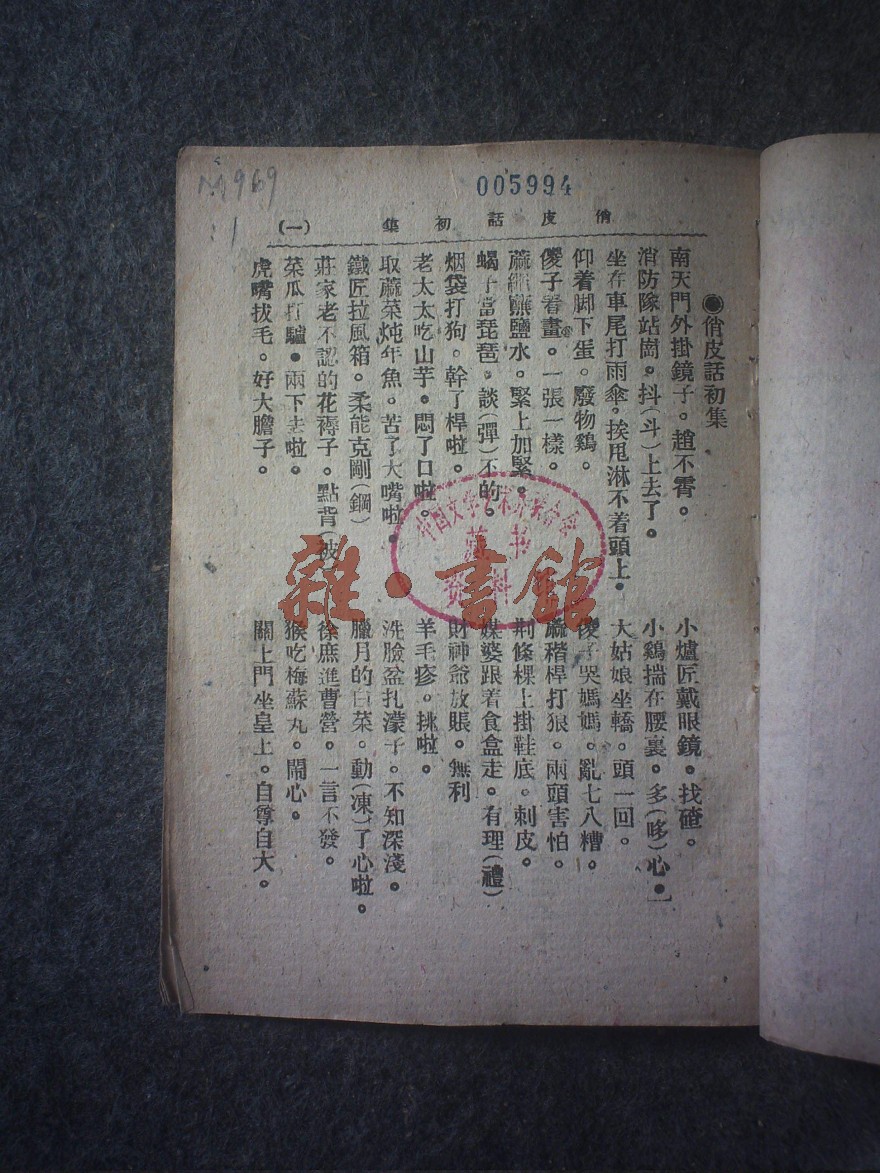 M969
005994
俏皮話初集 (一)
●俏皮話初集
南天門外掛鏡子。趙不霄。
消防隊站崗。抖(斗)上去了。
坐在車尾打雨傘。挨甩淋不着頭上。
仰着脚下蛋。廢物鷄。
傻子看畫。一張一樣。
蔴繩蘸鹽水。緊上加緊。
蝎子當琵琶。談(彈)不的。
烟袋打狗。幹了桿啦。
老太太吃山芋。悶了口啦。
取蔴菜炖年魚。苦了大嘴啦。
鐵匠拉風箱。柔能克剛(鋼)
莊家老不認的花褥子。點背(被
菜瓜打驢。兩下去啦。
虎嘴拔毛。好大膽子。
小爐匠戴眼鏡。找碴。
小鷄揣在腰裏。多(哆)心。
大姑娘坐轎。頭一回。
傻子哭媽媽。亂七八糟。
蔴稭桿打狼。兩頭害怕。
荆條棵上掛鞋底。刺皮。
媒婆跟着食盒走。有理(禮)
財神爺放賬。無利
羊毛疹。挑啦。
洗臉盆扎濛子。不知深淺。
臘月的白菜。動(凍)了心啦。
徐庶進曹營。一言不發。
猴吃梅蘇丸。鬧心。
關上門坐皇上。自尊自大。
雜·書館